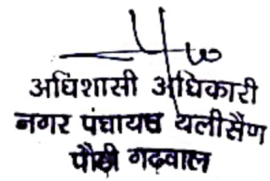 अधिशासी अधिकारी
नगर पंचायत थलीसैण
पौड़ी गढ़वाल